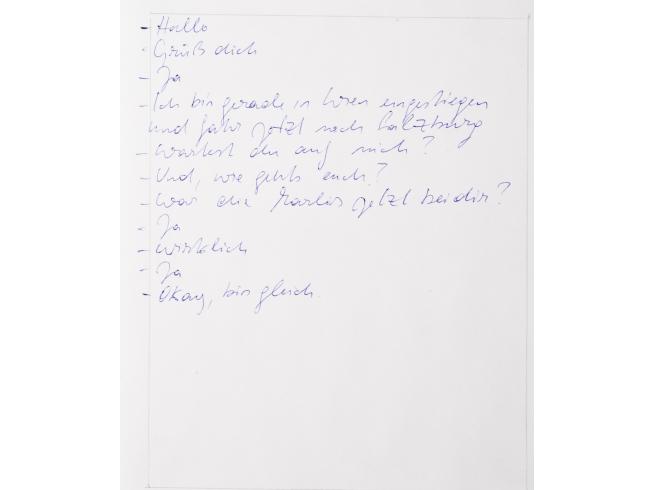 - Hallo
- Grüß dich
- Ja
- Ich bin gerade in Wien eingestiegen
und fahr jetzt nach Salzburg
- Wartest du auf mich?
- Und, wie gehts euch?
- War die Marlis jetzt bei dir?
- Ja
- Wirklich
- Ja
- Okay, bin gleich.